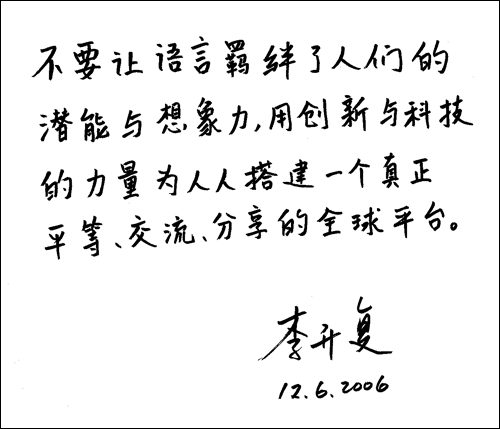 不要让语言羁绊了人们的
潜能与想象力,用创新与科技
的力量为人人搭建一个真正
平等、交流、分享的全球平台。
李开复
12.6.2006